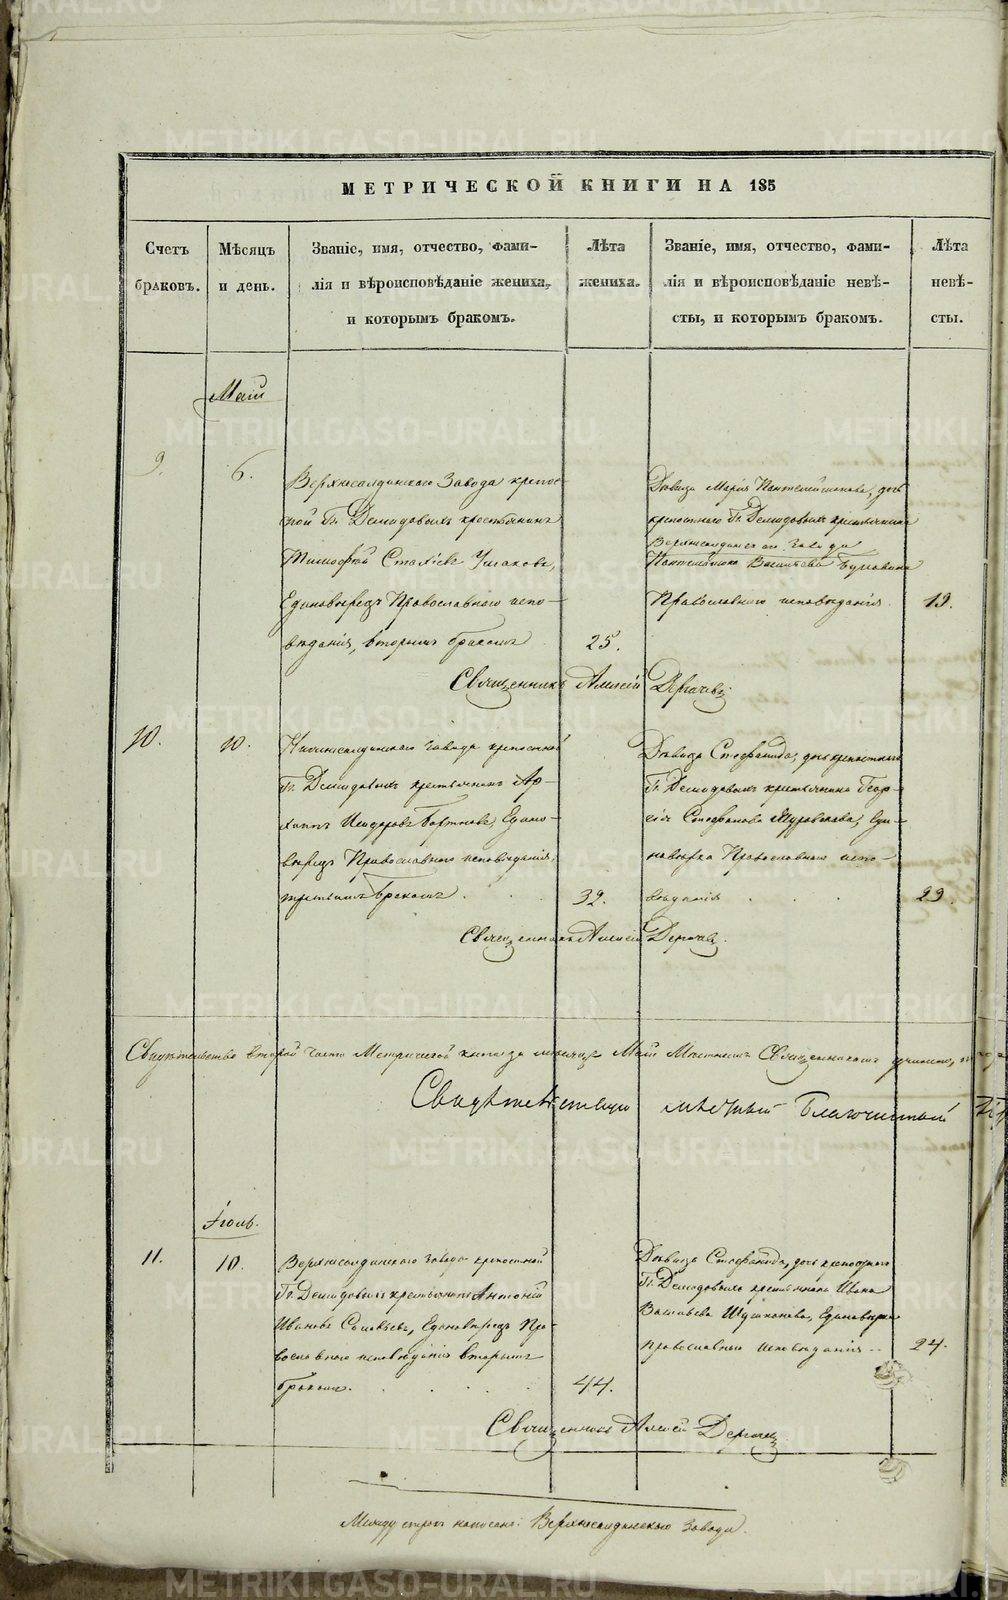 МЕТРИЧЕСКОЙ КНИГИ НА 185
Счетъ браковъ.
Мѣсяцъ и день.
Званіе, имя, отчество, фами-
лія и вѣроисповѣданіе жениха,
и которымъ бракомъ.
Лѣта
жениха.
Званіе, имя, отчество, фами-
лія и вѣроисповѣданіе невѣ-
сты, и которымъ бракомъ.
Лѣта
невѣ-
сты.
Маій
9.
6.
Верхнесалдинскаго Завода крепос-
ной Гг. Демидовыхъ крестьянинъ
Тимофей Ушаковъ,
Единоверецъ Православнаго испо-
вѣданія, вторымъ бракомъ
25.
Дѣвица Марія дочь
крепостнаго Гг. Демидовыхъ крестьянина
Верхнесалдинскаго Завода
Васильева
Православнаго исповѣданія
19.
Священникъ Алексій Дерягинъ
10.
10.
Нижнесалдинскаго завода крепостной
Гг. Демидовыхъ крестьянинъ Ар-
хипъ Исидоровъ Едино-
верецъ Православнаго исповѣданія,
третьимъ бракомъ
32.
Дѣвица Стефанида, дочь крепостнаго
Гг. Демидовыхъ крестьянина Геор-
гія Стефанова Еди-
новерка Православнаго испо-
вѣданія
29.
Священникъ Алексій
Свидѣтельство второй части Метрической книги за месяцъ Маій Мѣстнымъ Священникомъ учинено,
Свидѣтельствую мѣстный Благочинный
Іюль.
11.
10.
Верхнесалдинскаго завода крепостной
Гг. Демидовыхъ крестьянинъ Антоній
Ивановъ Единоверецъ Пра-
вославнаго исповѣданія вторымъ
бракомъ.
44.
Дѣвица Стефанида, дочь крепостнаго
Гг. Демидовыхъ крестьянина Ивана
Васильева Единоверка
православнаго исповѣданія
24.
Священникъ Алексій
Между строкъ написано: Верхнесалдинскаго Завода.
METRIKI.GASO-URAL.RU